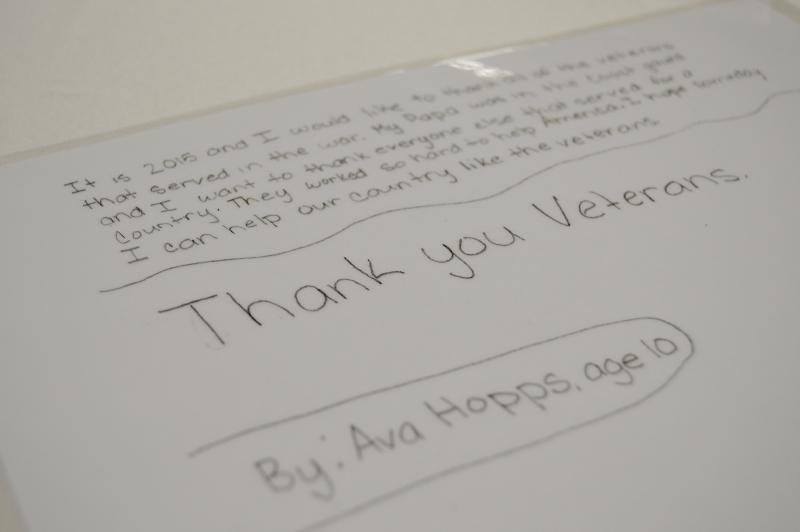 It is 2015 and I would like to thank all of the veterans
that served in the war. My Papa was in the coast guard
and I want to thank everyone else that served for a
country. They worked so hard to help America. I hope someday
I can help our country like the veterans
Thank you Veterans.
By: Ava Hopps, age 10